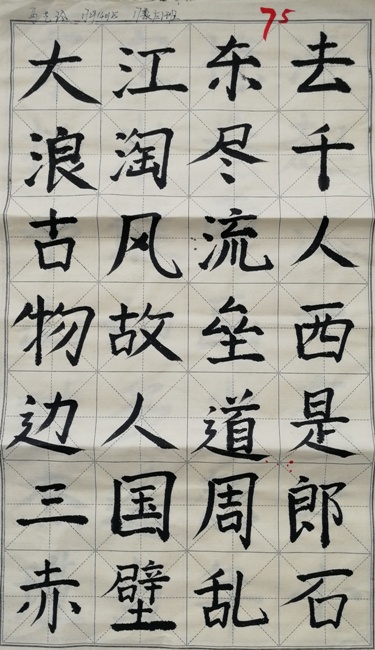 75
大江东去
浪淘尽千
古风流人
物故垒西
边人道是
三国周郎
赤壁乱石